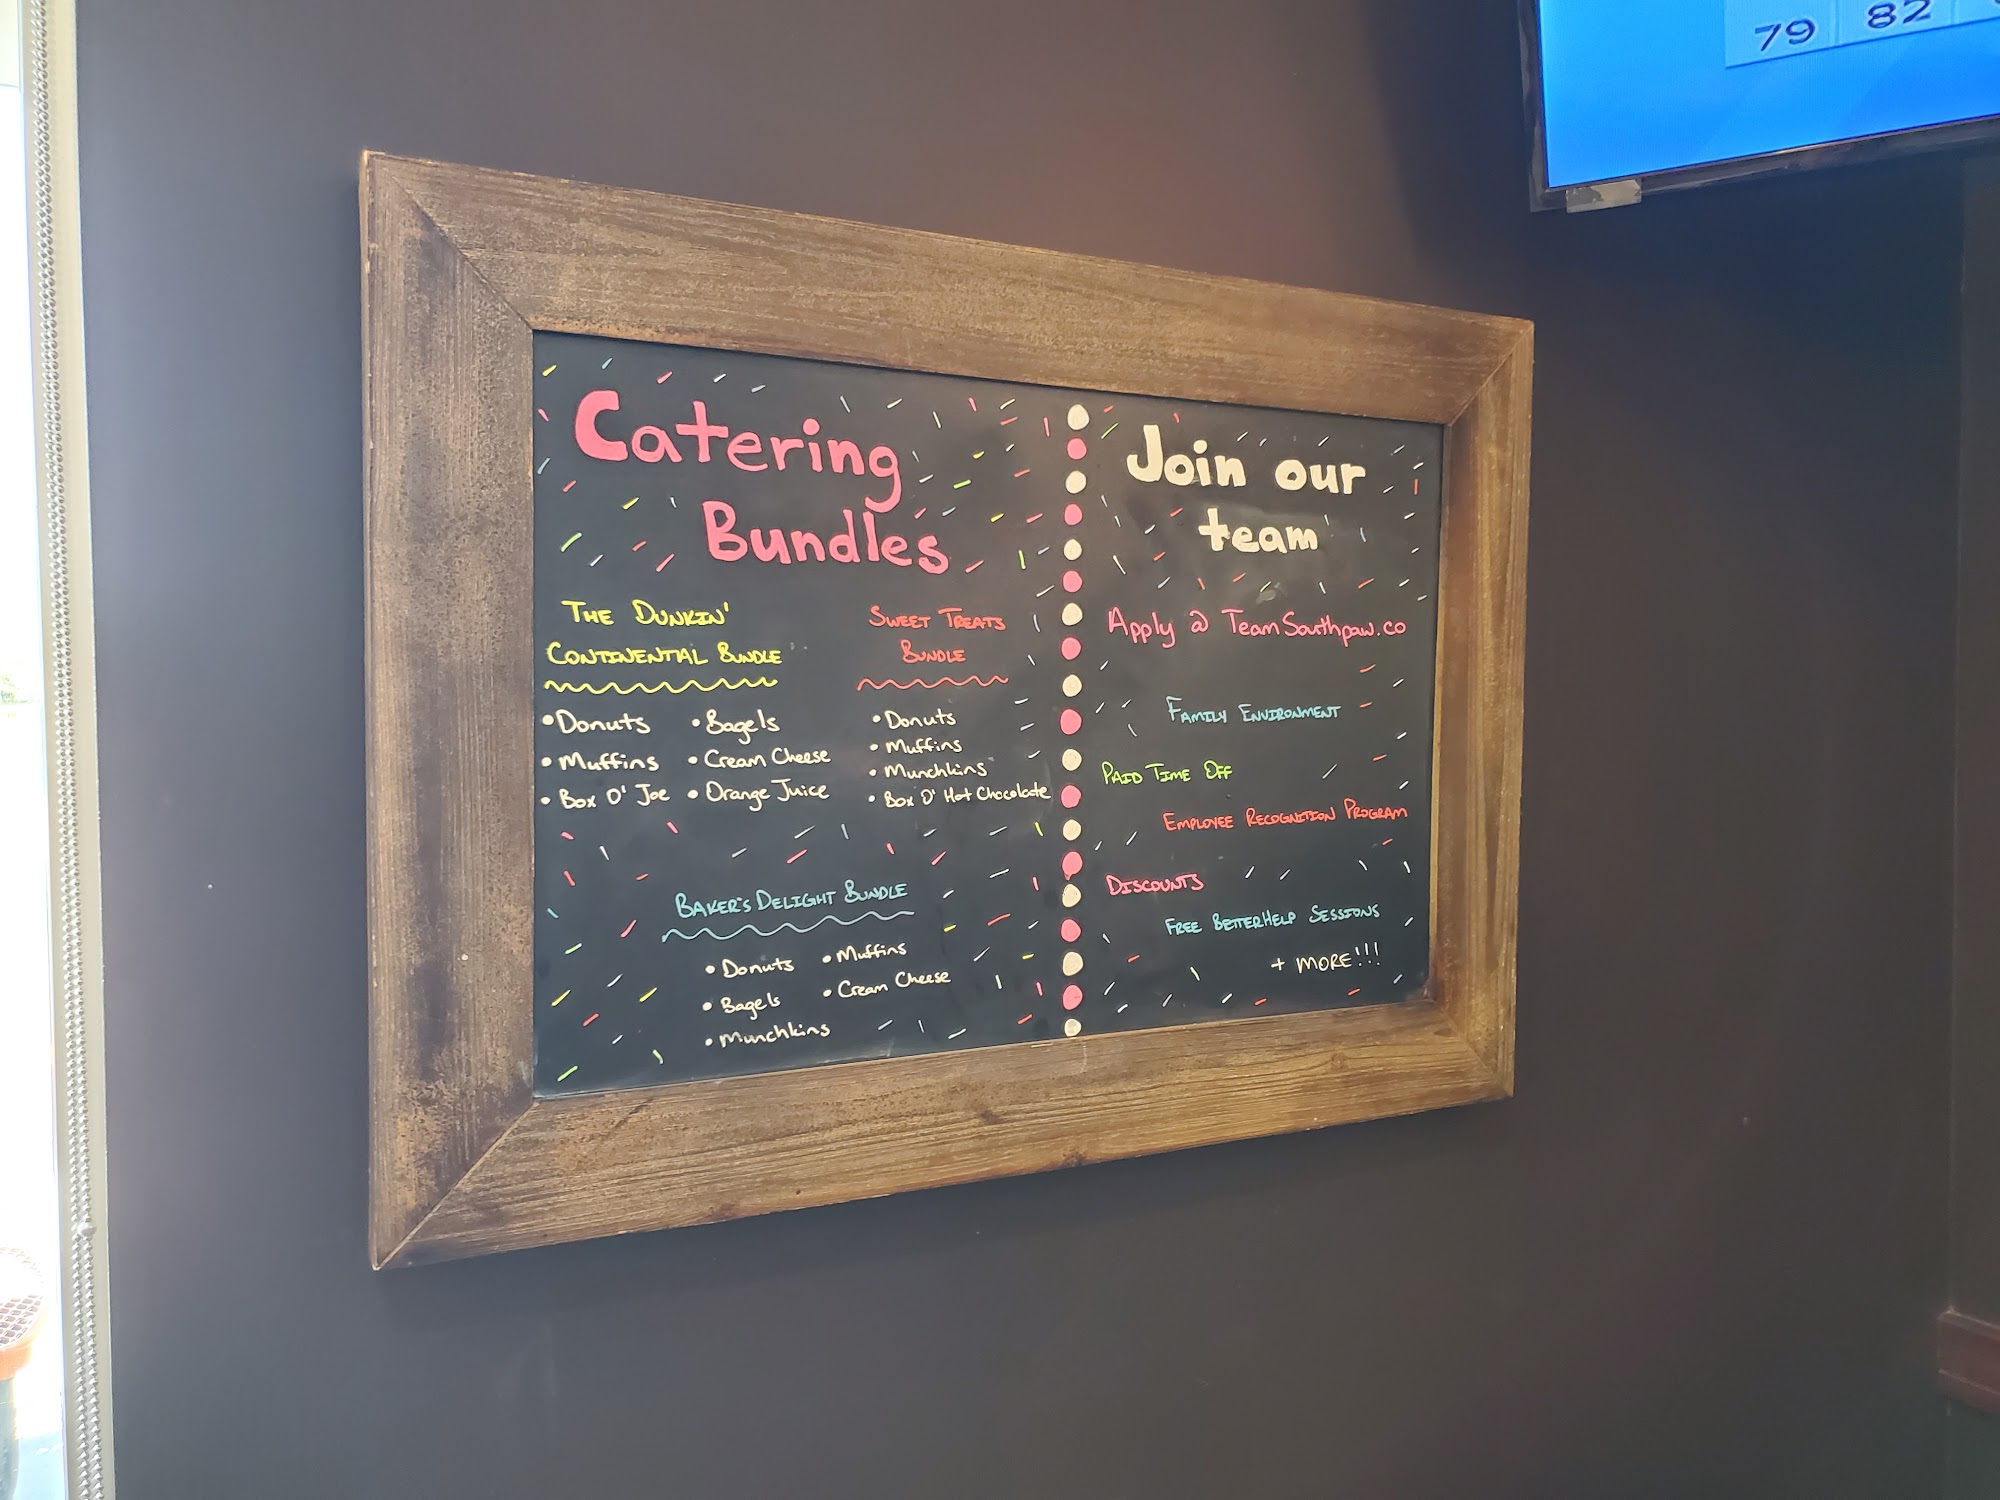 79 82
Catering
Bundles
THE DUNKIN'
CONTINENTAL BUNDLE
• Donuts
• Muffins
• Box O' Joe
• Bagels
• Cream Cheese
• Orange Juice
SWEET TREATS
BUNDLE
• Donuts
• Muffins
• Munchkins
• Box O' Hot Chocolate
BAKER'S DELIGHT BUNDLE
• Donuts
• Bagels
• Munchkins
• Muffins
• Cream Cheese
Join our
team
Apply @ TeamSouthpaw.co
FAMILY ENVIRONMENT
PAID TIME OFF
EMPLOYEE RECOGNITION PROGRAM
DISCOUNTS
FREE BETTERHELP SESSIONS
+ MORE!!!